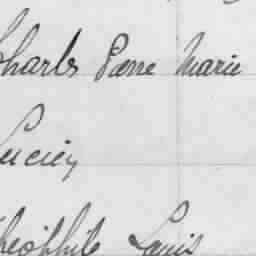 Charles Pierre Marie
Lucien
Théophile Louis